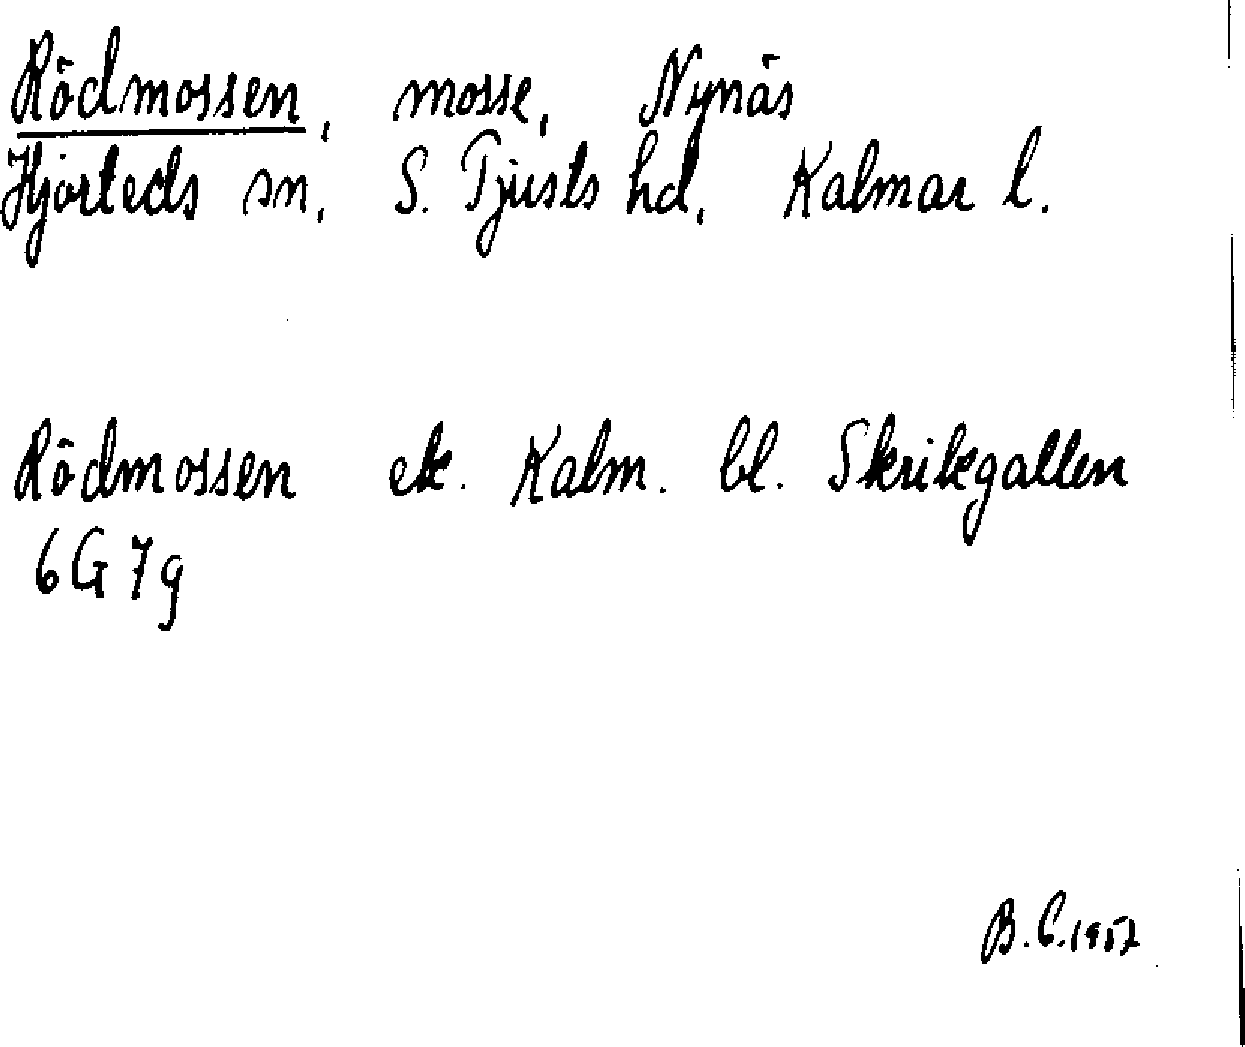 Rödmossen, mosse, Nynäs
Hjorteds sn, S. Tjusts hd, Kalmar l.
Rödmossen ek. Kalm. bl. Skrikegallen
6G 7g
B.C. 1952